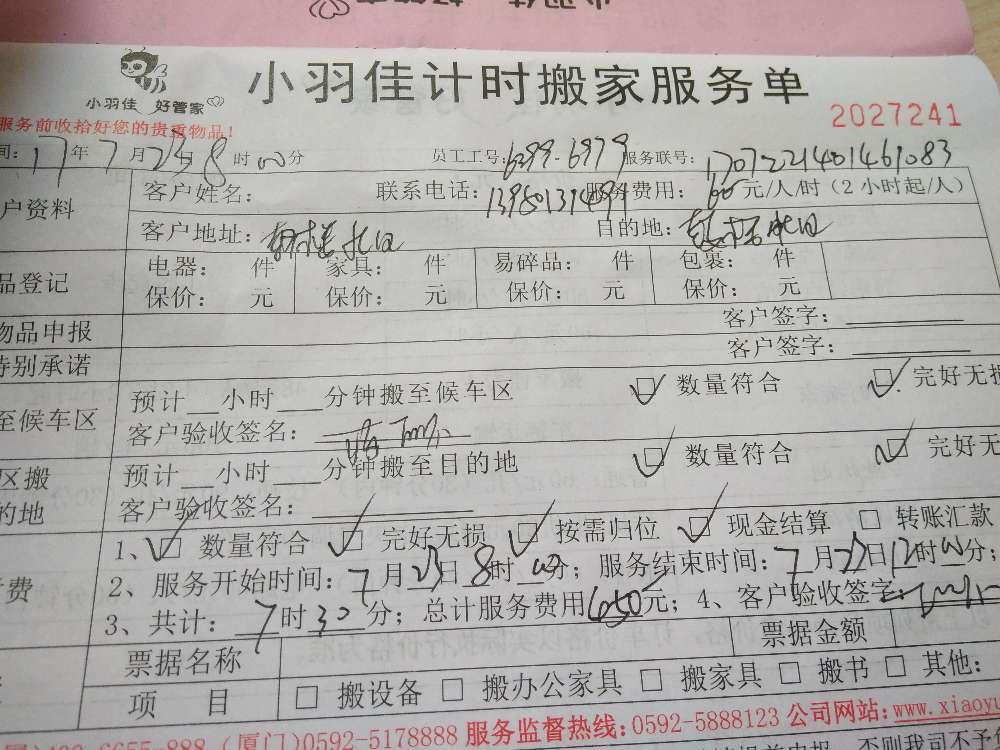 小羽佳 好管家
小羽佳计时搬家服务单
2027241
服务前收拾好您的贵重物品!
间: 17 年 7 月 23 8 时 00 分 员工工号: 6299-6979 服务联号: 1707221401461083
户资料
客户姓名: 联系电话: 服务费用: 60 元/人/时（2小时起/人）
客户地址: 目的地:
品登记
电器: 件 家具: 件 易碎品: 件 包裹: 件
保价: 元 保价: 元 保价: 元 保价: 元
物品申报 客户签字:
特别承诺 客户签字:
至候车区
预计 小时 分钟搬至候车区 数量符合 完好无损
客户验收签名:
区搬
的地
预计 小时 分钟搬至目的地 数量符合 完好
客户验收签名:
1、 数量符合 完好无损 按需归位 现金结算 转账汇款
费
2、服务开始时间: 7 月 23 日 8 时 00 分; 服务结束时间: 7 月 23 日 12 时 00 分;
3、共计: 7 时 30 分; 总计服务费用 650 元; 4、客户验收签字:
票据名称 票据金额
项 目 搬设备 搬办公家具 搬家具 搬书 其他:
6655-888 (厦门)0592-5178888 服务监督热线:0592-5888123 公司网站:www.xiaoyu